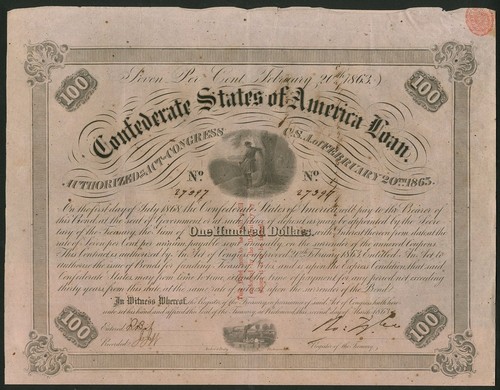 Seven Per Cent February 20th 1863.
Confederate States of America Loan.
AUTHORIZED BY ACT OF CONGRESS C.S.A. OF FEBRUARY 20TH 1863.
100 100
No No
On the first day of July 1868 the Confederate States of America will pay to the Bearer of
this Bond at the seat of Government, or at such place of deposit as may be appointed by the Secre
tary of the Treasury, the Sum of One Hundred Dollars, with Interest thereon from date at the
rate of Seven per Cent per annum payable semi annually, on the surrender of the annexed Coupons
This Contract is authorized by an Act of Congress approved 20th February 1863 Entitled "An Act to
Authorize the issue of Bonds for funding Treasury Notes" and is upon the express Condition, that said
Confederate States may from time to time extend the time of payment for any period not exceeding
thirty years from this date at the same rate of Interest upon the surrender of this Bond.
In Witness Whereof, the Register of the Treasury in pursuance of said Act of Congress hath here
unto set his hand and affixed the Seal of the Treasury at Richmond this second day of March 1863
Entered
Recorded
Register of the Treasury.
100 100